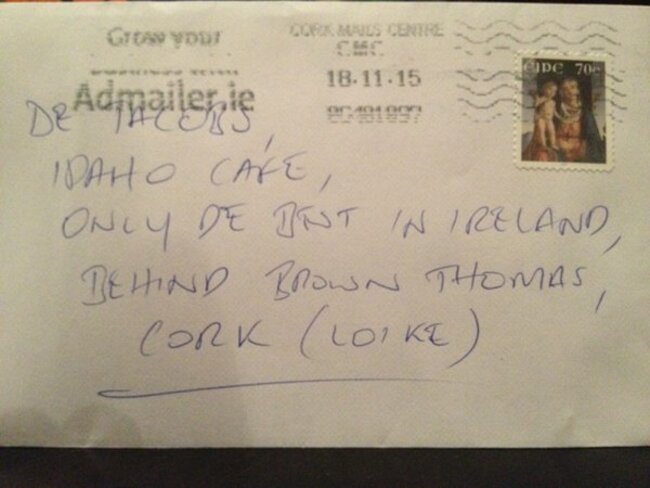 Grow your
business with
Admailer.ie
CORK MAILS CENTRE
CMC
18-11-15
ÉIRE 70c
DE JACOBS,
IDAHO CAFE,
ONLY DE BEST IN IRELAND,
BEHIND BROWN THOMAS,
CORK (LOIKE)